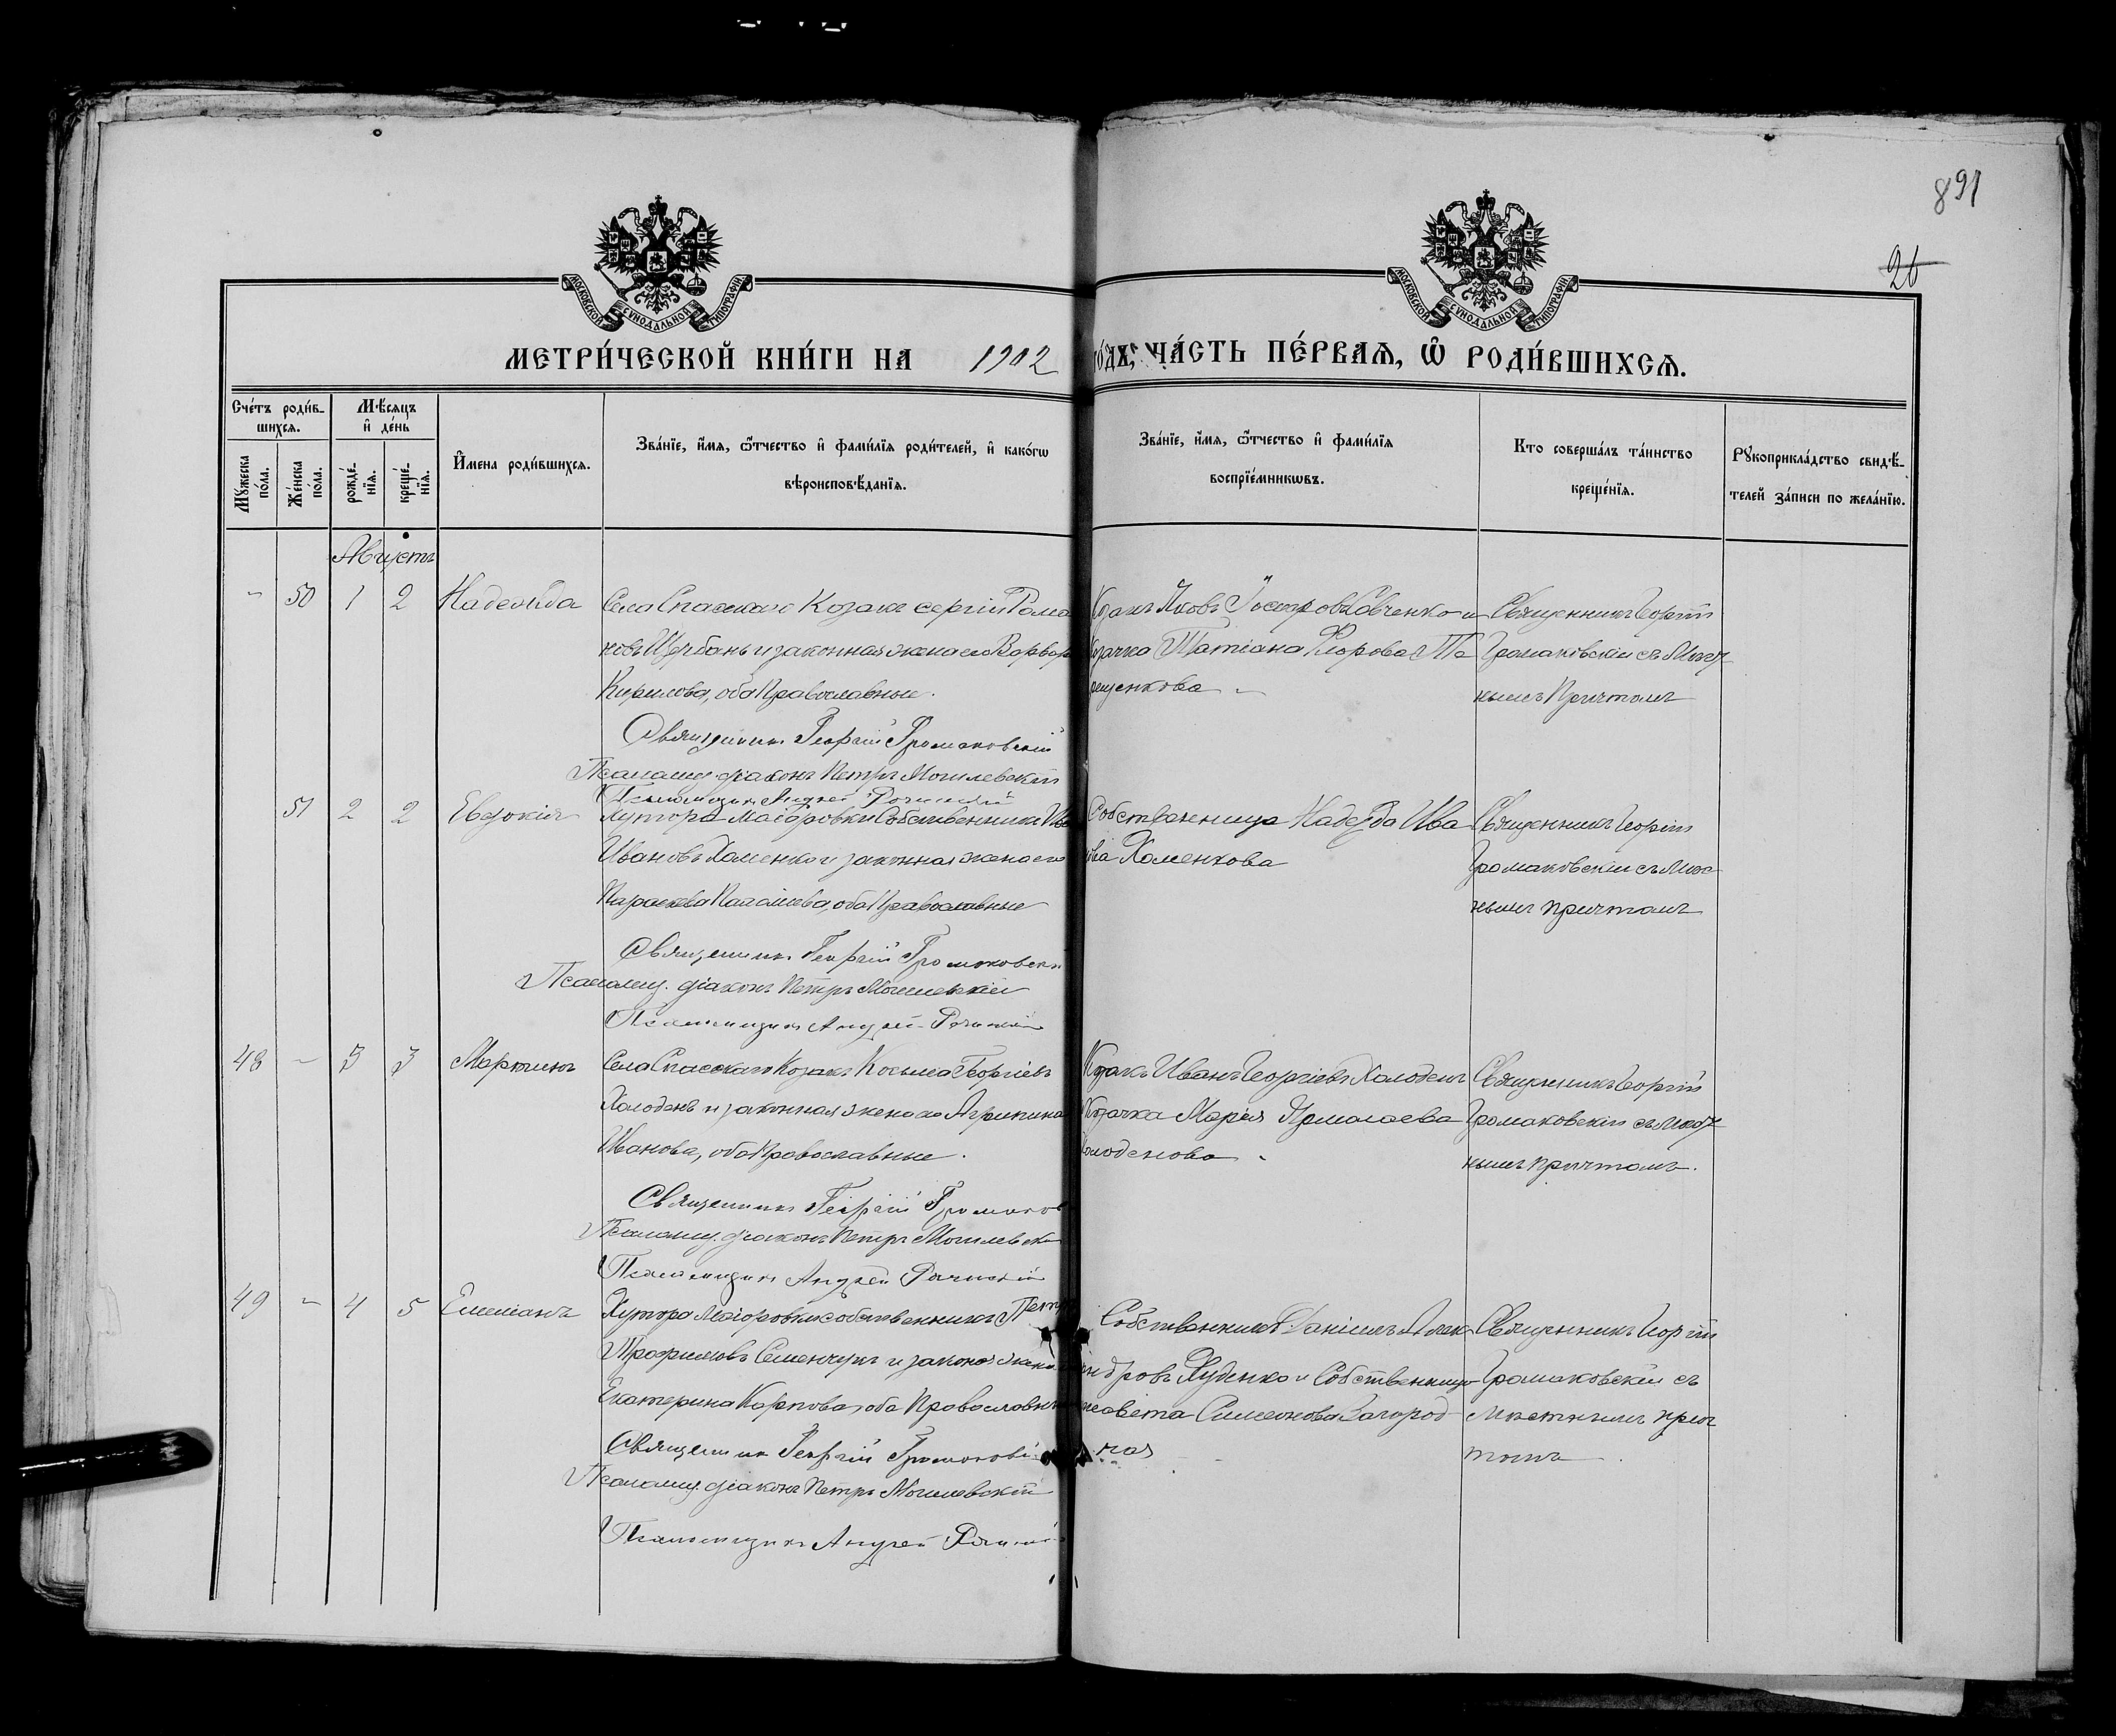 891
26
МОСКОВСКОЙ СѴНОДАЛЬНОЙ ТИПОГРАФІИ
МОСКОВСКОЙ СѴНОДАЛЬНОЙ ТИПОГРАФІИ
МЕТРИ́ЧЕСКОЙ КНИ́ГИ НА 1902 ГО́ДЪ, ЧА́СТЬ ПЕ́РВАѦ, Ѡ҆ РОДИ́ВШИХСѦ.
Сче́тъ роди́в-
шихсѧ.
Мꙋ́жеска по́ла.
Же́нска по́ла.
Мѣ́сѧцъ
и҆ де́нь
рожде́-
нїѧ.
креще́-
нїѧ.
И҆мена роди́вшихсѧ.
Зва́нїе, и҆́мѧ, ѻ҆́тчество и҆ фами́лїѧ роди́телей, и҆ како́гѡ
вѣроисповѣ́данїѧ.
Зва́нїе, и҆́мѧ, ѻ҆́тчество и҆ фами́лїѧ
воспрїе́мникѡвъ.
Кто соверша́лъ та́инство
креще́нїѧ.
Рꙋкоприкла́дство свидѣ́-
телей за́писи по жела́нїю.
Августъ
- 50 1 2 Надежда
Села Спасскаго Козакъ Сергій Рома
новъ Щербань и законная жена его Варвар
Кирилова, оба Православные.
Священникъ Георгій Громаковскій
Псаломщ. діаконъ Петръ Могилевскій
Псаломщикъ Андрей
Козакъ Яковъ Савченко и
Козачка Татіана Те
рещенкова
Священникъ Георгій
Громаковскій съ Мѣст
нымъ Причтомъ
51 2 2 Евдокія
Хутора Маіоровки Собственникъ
Ивановъ Хоменко и законная жена его
Параскева, оба Православные
Священникъ Георгій Громаковск
Псаломщ. діаконъ Петръ Могилевскій
Псаломщикъ Андрей
Собственница Надежда Ива
нова Хоменкова
Священникъ Георгій
Громаковскій съ Мѣст
нымъ причтомъ
48 - 3 3 Мартинъ
Села Спасскаго Козакъ Косьма Георгіевъ
Холоденъ и законная жена его Агрипина
Иванова, оба Православные.
Священникъ Георгій Громаков
Псаломщ. діаконъ Петръ Могилевскі
Псаломщикъ Андрей
Козакъ Иванъ Георгіевъ Холоденъ
Козачка Марія Ермолаева
Холоденова
Священникъ Георгій
Громаковскій съ Мѣст
нымъ причтомъ.
49 - 4 5 Емеліанъ
Хутора Маіоровки собственникъ Петр
Трофимовъ Семенчукъ и законая жена
Екатерина Карпова, оба Православны
Священникъ Георгій Громаковскі
Псаломщ. діаконъ Петръ Могилевскій
Псаломщикъ Андрей
Собственникъ Даніилъ Алек
андровъ Худенко и Собственница
исавета Симеонова Загород
ная
Священникъ Георгій
Громаковскій съ
мѣстнымъ прич
томъ